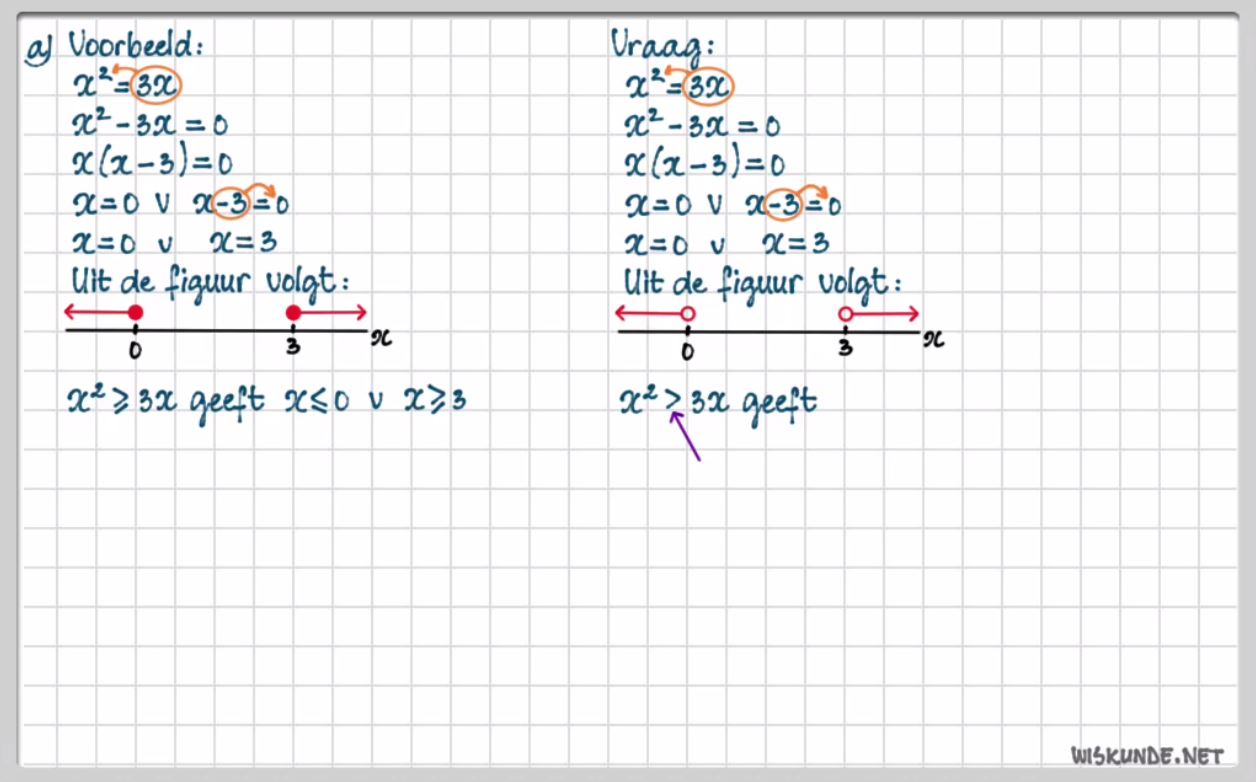 a) Voorbeeld:
x² = 3x
x² - 3x = 0
x(x - 3) = 0
x = 0 ∨ x - 3 = 0
x = 0 ∨ x = 3
Uit de figuur volgt:
0 3 x
x² ⩾ 3x geeft x ⩽ 0 ∨ x ⩾ 3
Vraag:
x² = 3x
x² - 3x = 0
x(x - 3) = 0
x = 0 ∨ x - 3 = 0
x = 0 ∨ x = 3
Uit de figuur volgt:
0 3 x
x² > 3x geeft
WISKUNDE.NET